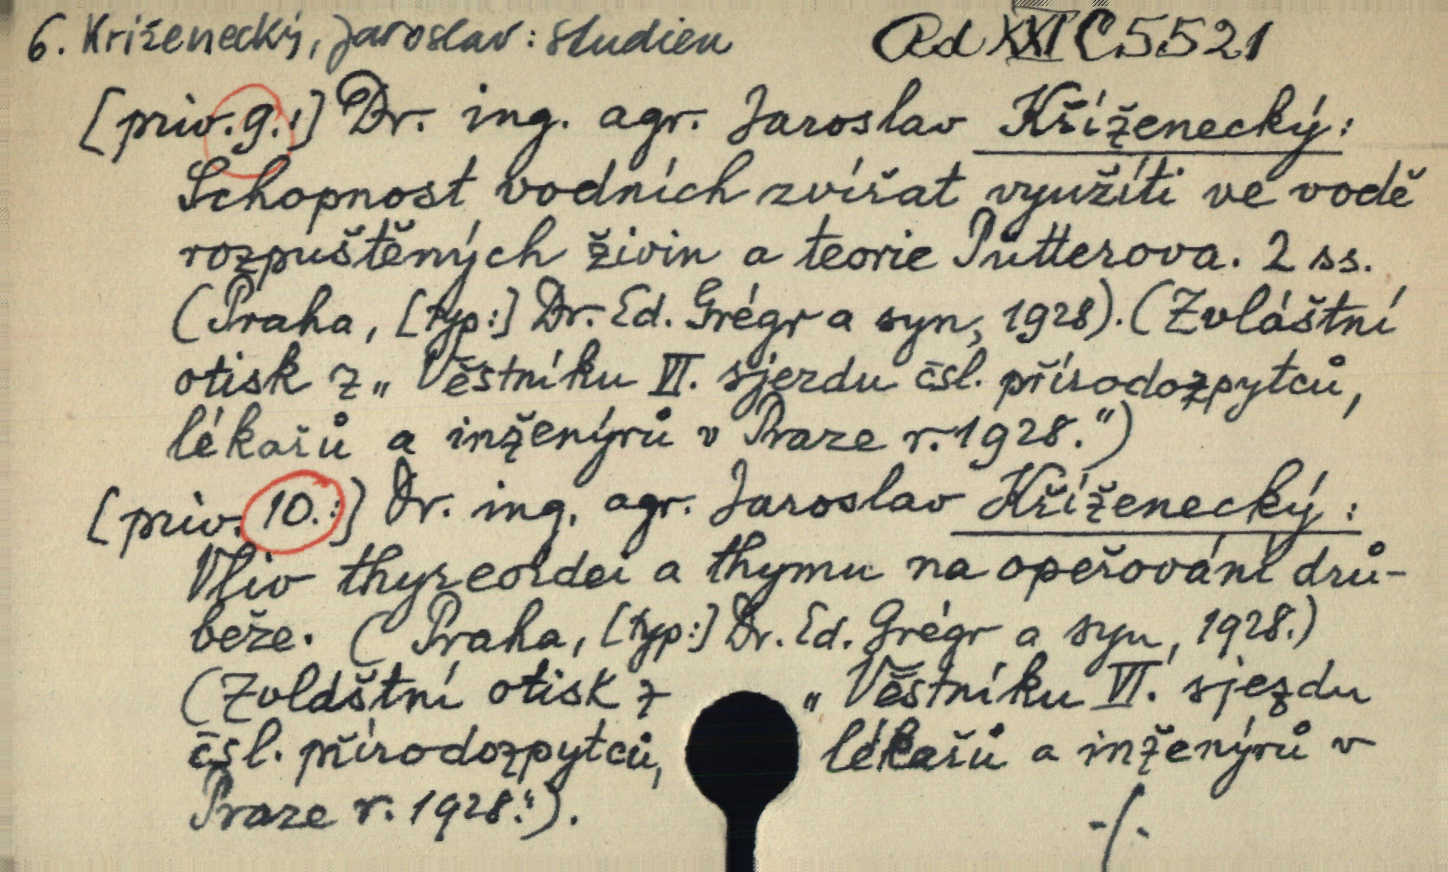 6. Kříženecký, Jaroslav: Studien Ad XXI C 5521
[priv. 9.:] Dr. ing. agr. Jaroslav Kříženecký:
Schopnost vodních zvířat využíti ve vodě
rozpuštěných živin a teorie Pütterova. 2 ss.
(Praha, [typ:] Dr. Ed. Grégr a syn, 1928). (Zvláštní
otisk z „Věstníku VI. sjezdu čsl. přírodozpytců,
lékařů a inženýrů v Praze r. 1928.")
[priv. 10.:] Dr. ing. agr. Jaroslav Kříženecký:
Vliv thyreoidei a thymu na opeřování drů-
beže. (Praha, [typ:] Dr. Ed. Grégr a syn, 1928.)
(Zvláštní otisk z „Věstníku VI. sjezdu
čsl. přírodozpytců, lékařů a inženýrů v
Praze r. 1928.").
-/-